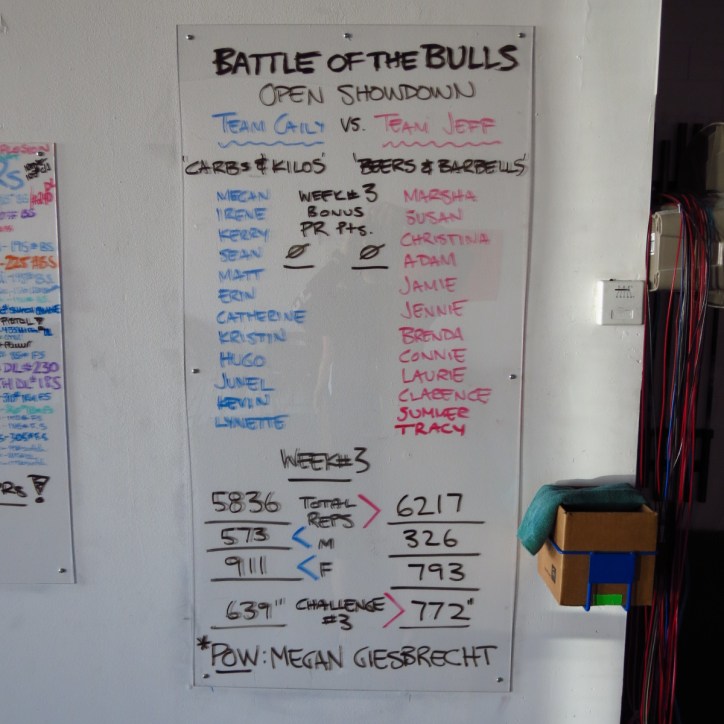 BATTLE OF THE BULLS
OPEN SHOWDOWN
TEAM CAILY VS. TEAM JEFF
'CARBS & KILOS' 'BEERS & BARBELLS'
MEGAN WEEK #3 MARSHA
IRENE BONUS SUSAN
KERRY PR PTS. CHRISTINA
SEAN Ø Ø ADAM
MATT JAMIE
ERIN JENNIE
CATHERINE BRENDA
KRISTIN CONNIE
HUGO LAURIE
JUNEL CLARENCE
KEVIN SUMLER
LYNETTE TRACY
WEEK #3
5836 TOTAL REPS > 6217
573 < M 326
911 < F 793
639''' CHALLENGE #3 > 772"
*POW: MEGAN GIESBRECHT
-225#BS
PISTOL!
DL#230
PRs!